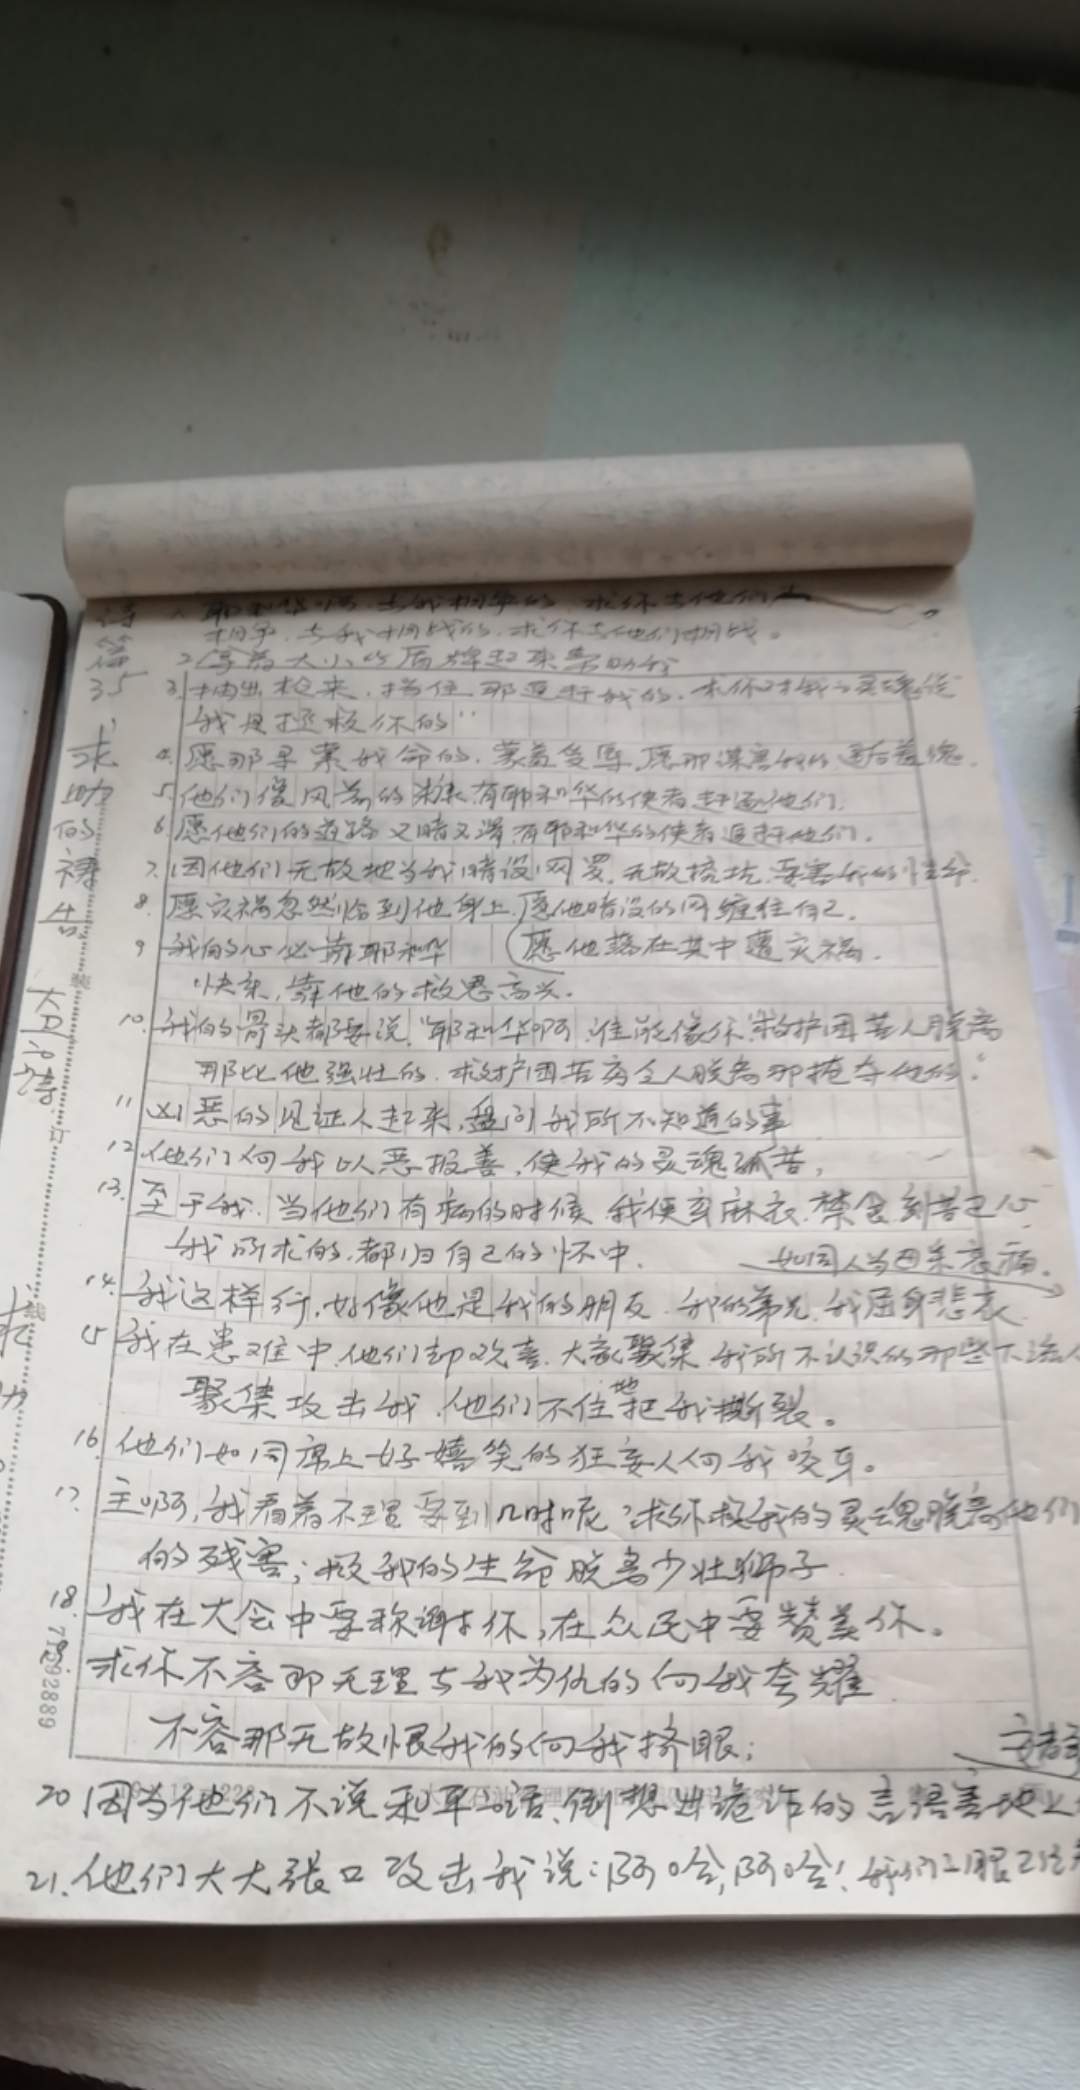 诗篇35
求助的祷告
大卫的诗
1 耶和华啊，与我相争的，求你与他们
相争，与我相战的，求你与他们相战。
2 拿着大小的盾牌起来帮助我
3 抽出枪来，挡住那追赶我的，求你对我的灵魂说
我是拯救你的"
4. 愿那寻索我命的，蒙羞受辱，愿那谋害我的退后羞愧.
5. 他们像风前的糠有耶和华的使者赶逐他们.
6. 愿他们的道路又暗又滑有耶和华的使者追赶他们.
7. 因他们无故地当我暗设网罗，无故挖坑，要害我的性命.
8. 愿灾祸忽然临到他身上，愿他暗设的网缠住自己.
愿他落在其中遭灾祸.
9 我的心必靠耶和华
快乐，靠他的救恩高兴.
10. 我的骨头都要说，"耶和华啊，谁能像你救护困苦人脱离
那比他强壮的，救护困苦穷乏人脱离那抢夺他的.
11 凶恶的见证人起来，盘问我所不知道的事
12 他们向我以恶报善，使我的灵魂孤苦，
13. 至于我，当他们有病的时候，我便穿麻衣，禁食刻苦己心
我所求的，都归自己的怀中.
14. 我这样行，好像他是我的朋友，我的弟兄，我屈身悲哀
如同人为母亲哀痛.
15 我在患难中，他们却欢喜，大家聚集，我所不认识的那些下流人
聚集攻击我，他们不住地把我撕裂。
16. 他们如同席上好嬉笑的狂妄人向我咬牙。
17. 主啊，我看着不理要到几时呢？求你救我的灵魂脱离他们
的残害；救我的生命脱离少壮狮子
18. 我在大会中要称谢你，在众民中要赞美你。
求你不容那无理与我为仇的向我夸耀
不容那无故恨我的向我挤眼；
7192889
20 因为他们不说和平话，倒想出诡诈的言语害地上
21. 他们大大张口攻击我说：阿哈，阿哈！我们的眼已经